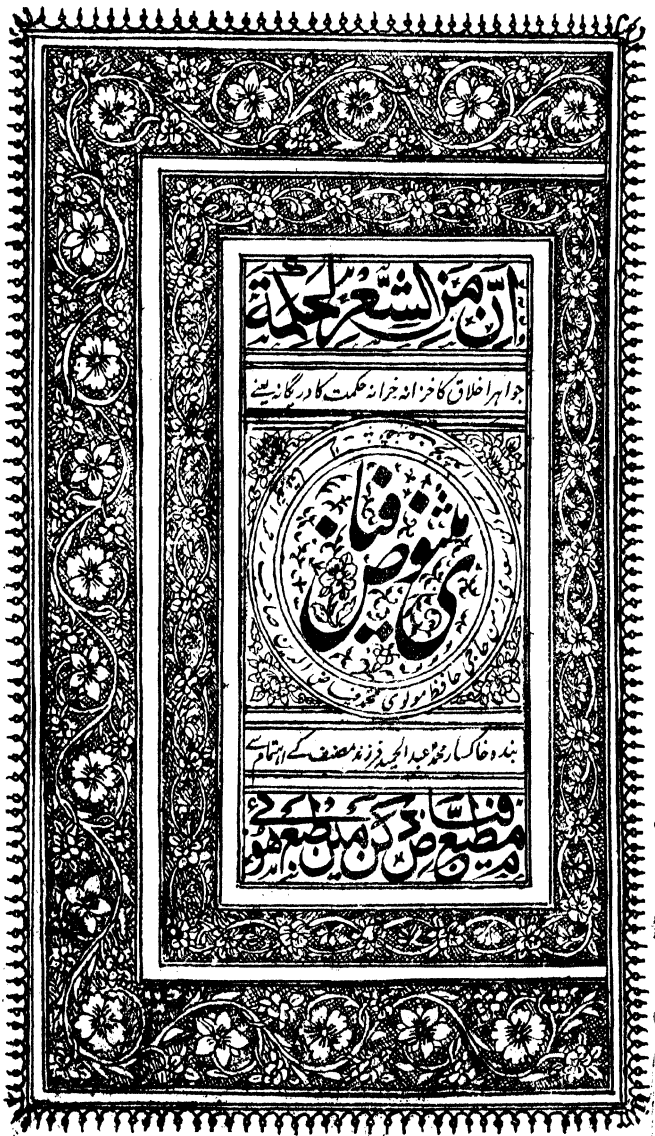 اِنَّ مِنَ الشِّعْرِ لَحِكْمَة
جواہر اخلاق کا خزانہ خزانہ حکمت کا در یگانہ یعنے
مثنوی فیاض
حاجی حافظ مولوی محمد فیاض الدین صاحب
بندہ خاکسار محمد عبد الحمید فرزند مصنف کے اہتمام سے
مطبع فیاض دکن میں طبع ہوئی